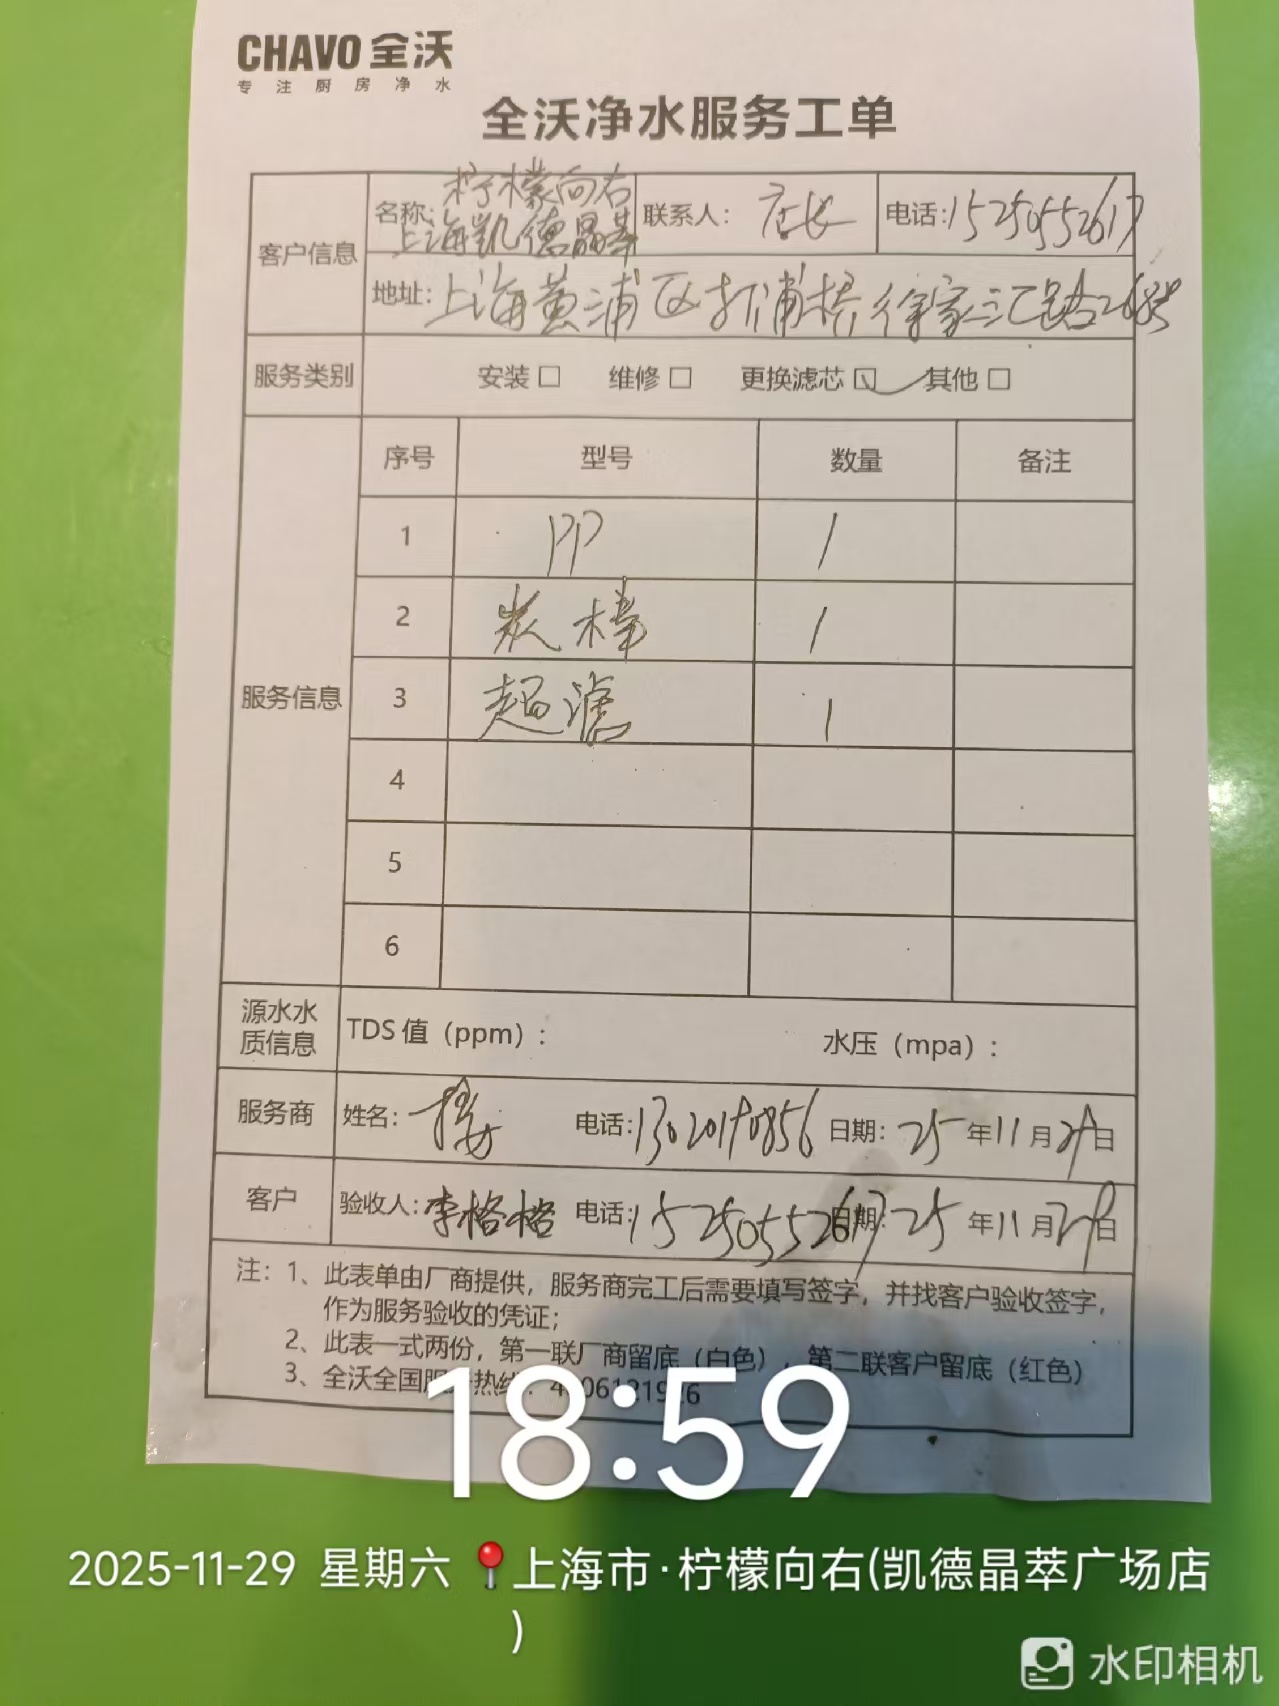 CHAVO 全沃
专注厨房净水
全沃净水服务工单
客户信息 名称: 柠檬向右 上海凯德晶萃 联系人: 店长 电话: 15250552617
地址: 上海黄浦区打浦桥徐家汇路268号
服务类别 安装□ 维修□ 更换滤芯☑ 其他□
服务信息
序号 型号 数量 备注
1 PP 1
2 炭棒 1
3 超滤 1
4
5
6
源水水质信息 TDS 值（ppm）: 水压（mpa）:
服务商 姓名: 电话: 13020190856 日期: 25年11月29日
客户 验收人: 李格格 电话: 15250552617 日期: 25年11月29日
注: 1、此表单由厂商提供，服务商完工后需要填写签字，并找客户验收签字，
作为服务验收的凭证;
2、此表一式两份，第一联厂商留底（白色），第二联客户留底（红色）
3、全沃全国服务热线:
18:59
2025-11-29 星期六 上海市·柠檬向右(凯德晶萃广场店
)
水印相机